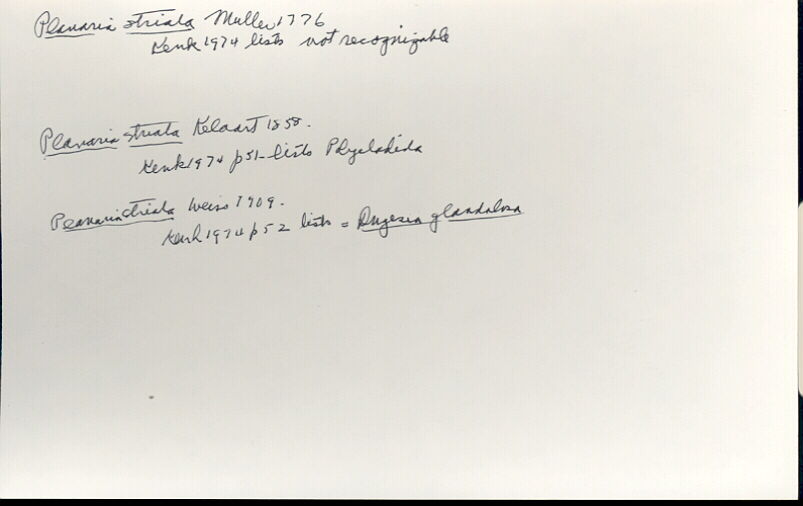 Planaria striata Muller 1776
Kenk 1974 lists not recognizable
Planaria striata Kelaart 1858.
Kenk 1974 p51 - lists Polycladida
Planaria striata Weiss 1909.
Kenk 1974 p52 lists = Dugesia glandulosa